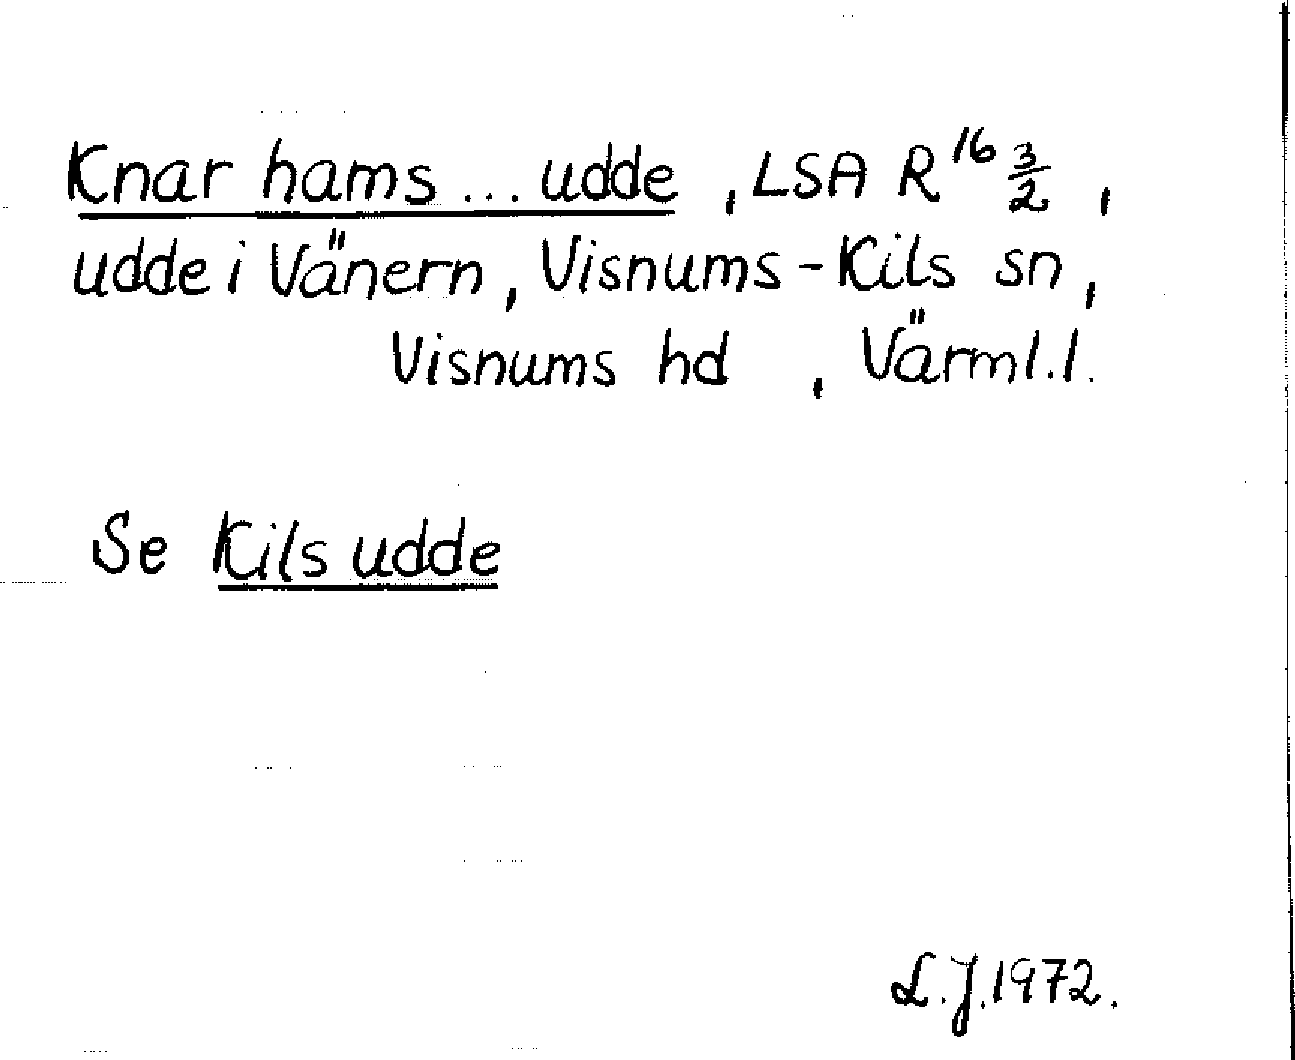 Knar hams... udde , LSA R¹⁶ 3/2 ,
udde i Vänern, Visnums-Kils sn,
Visnums hd , Värml.l.
Se Kils udde
L.J.1972.